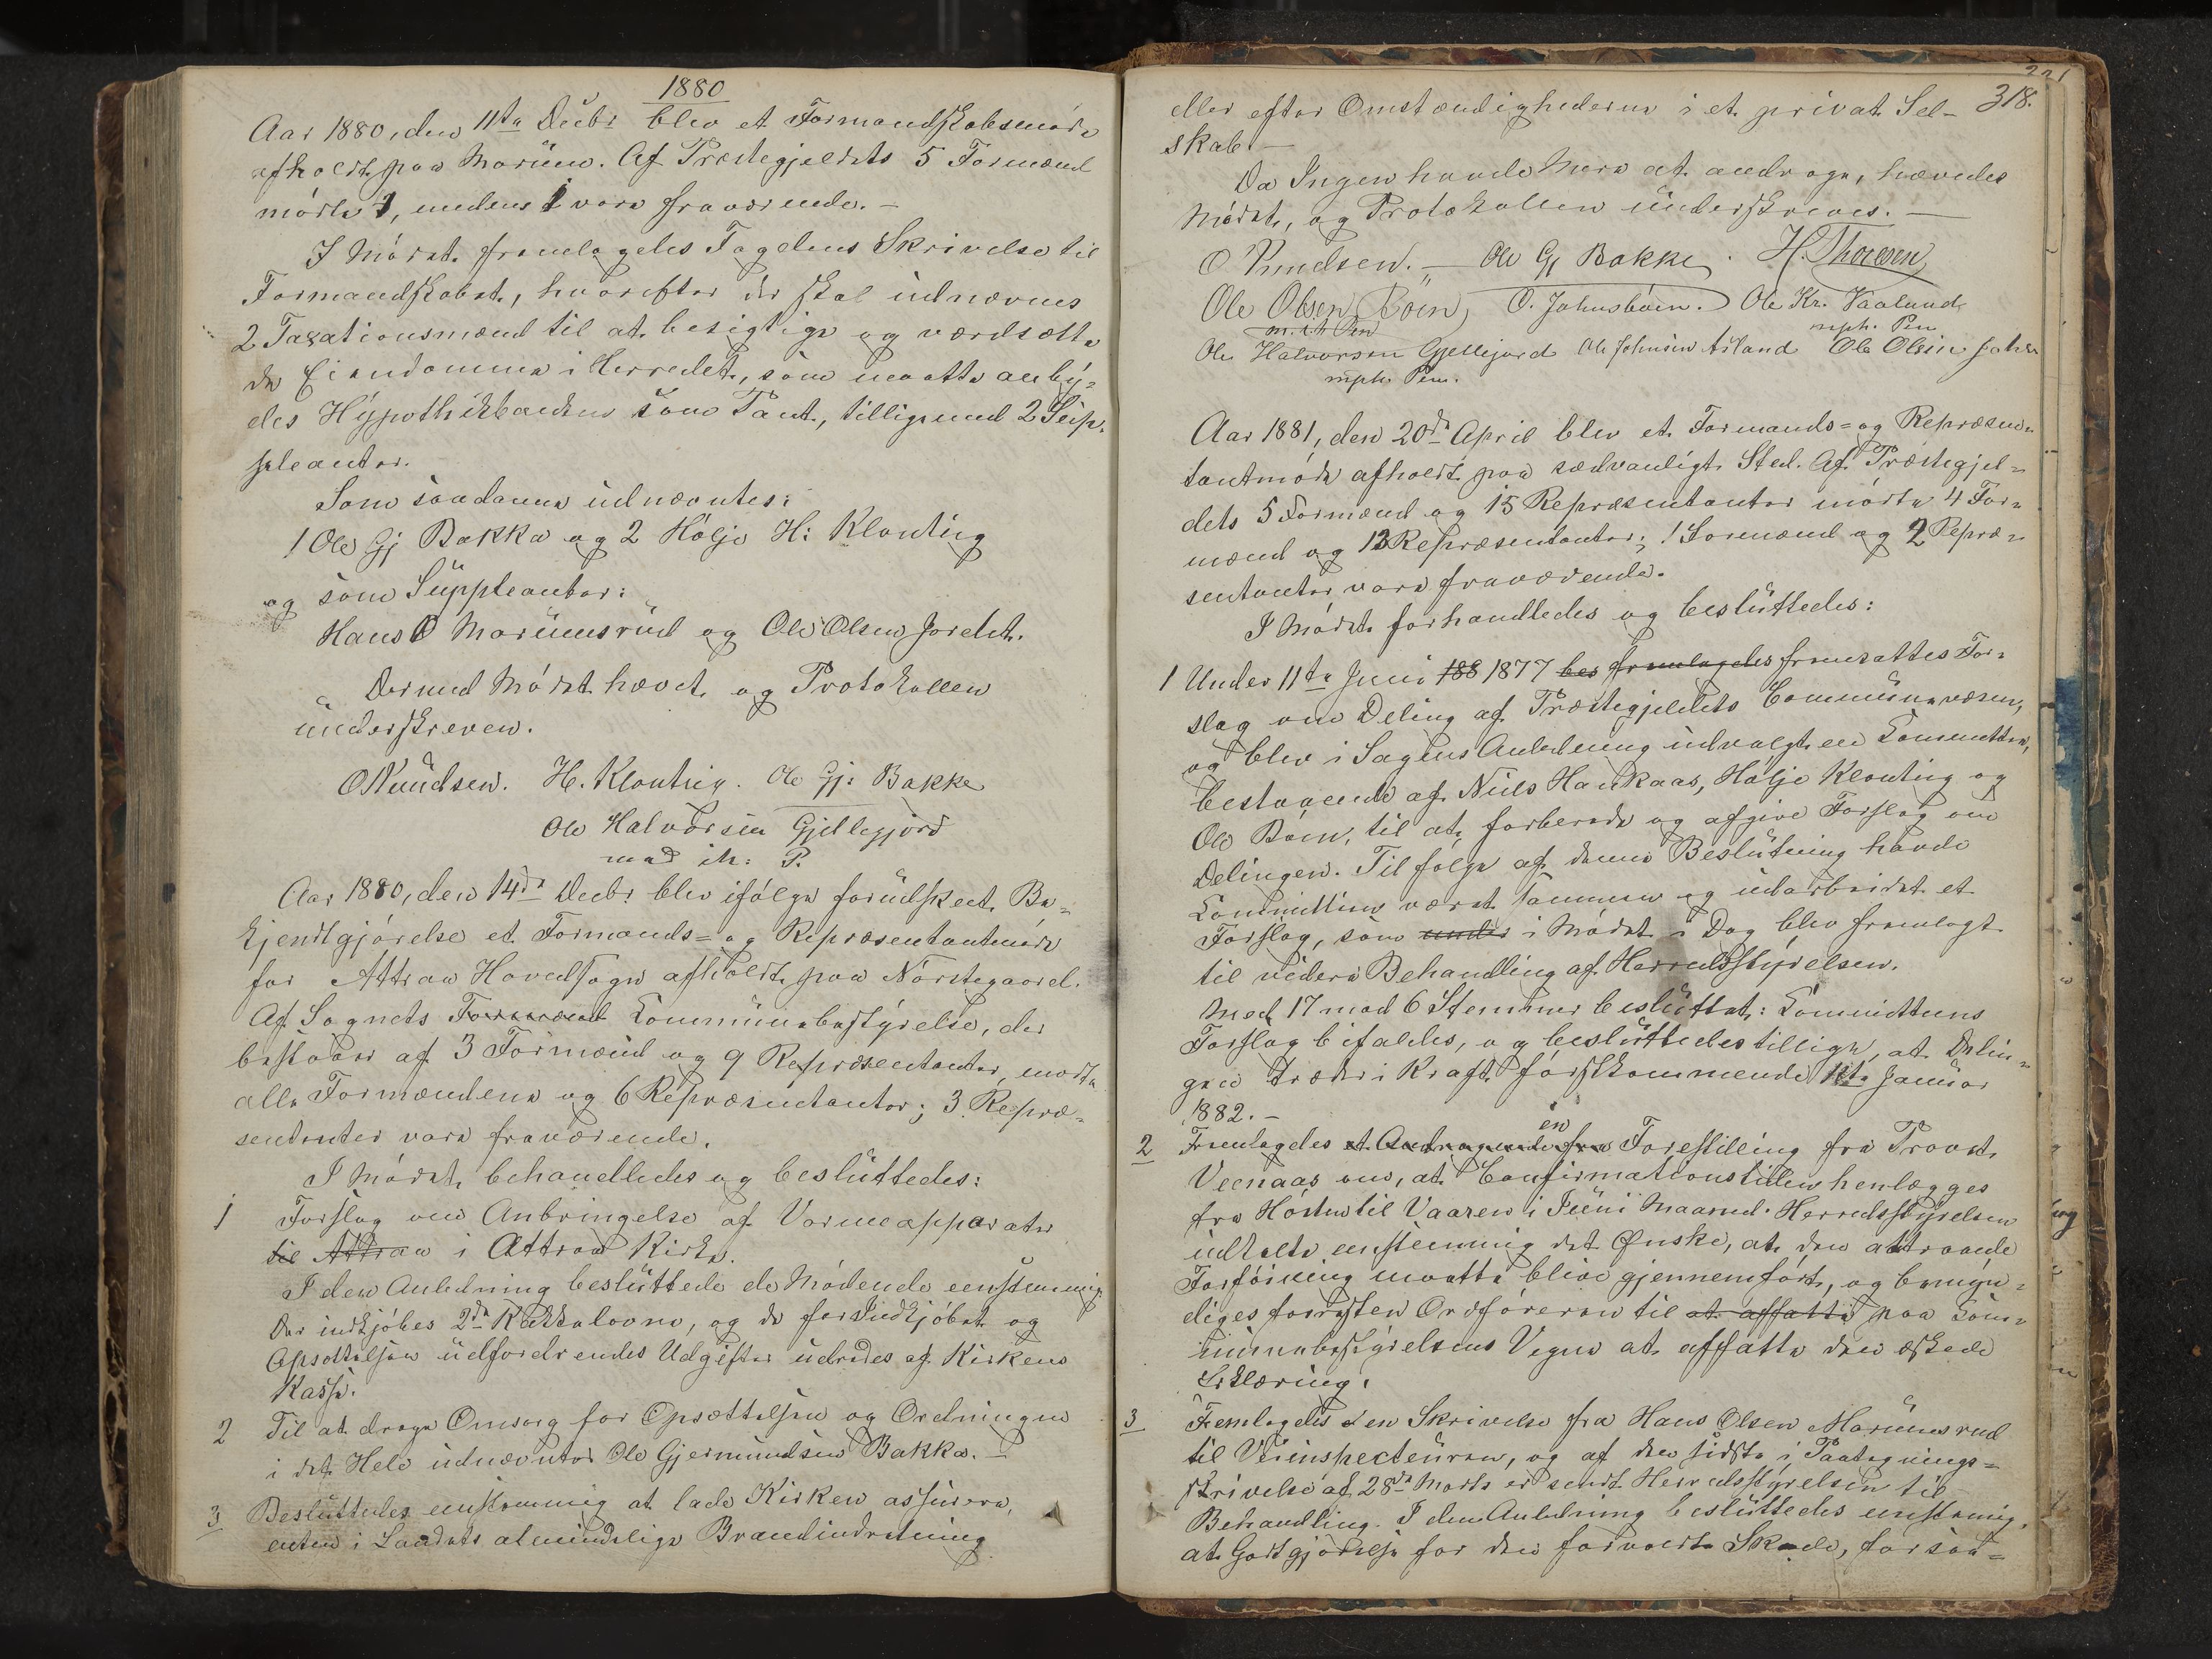 1880
Aar 1880, den 11te Decbr blev et Formandskabsmøde
afholdt paa Moruum. Af Præstegjeldets 5 Formænd
mødte , medens 1 vare fraværende. –
I Mødet fremlagdes Fogdens Skrivelse til
Formandskabet, hvorefter der skal udnævnes
2 Taxationsmænd til at besigtige og værdsætte
de Eiendomme i Herredet, som maatte anby-
des Hypothekbanken som Pant, tilligemed 2 Sup-
pleanter.
Som saadanne udnævntes:
1 Ole Gj Bakka og 2 Høljo H: Klonting
og som Suppleanter:
Hans O Moruumsrud og Ole Olsen Jordet.
Dermed Mødet hævet og Protokollen
underskreven.
O Knudsen. H. Klonteig. Ole Gj: Bakke
Ole Halvorsen Gjellegjord
med ih: P.
Aar 1880, den 14de Decbr blev ifølge forudskeet Be-
kjendtgjørelse et Formands- og Repræsentantmøde
for Attraa Hovedsogn afholdt paa Nørstegaard.
Af Sognets Formænd Communebestyrelse, der
bestaaer af 3 Formænd og 9 Repræsentanter, mødte
alle Formændene og 6 Repræsentanter; 3 Repræ-
sentanter vare fraværende.
I Mødet behandledes og besluttedes:
1 Forslag om Anbringelse af Varmeapparater
til Attraa i Attraa Kirke.
I den Anledning besluttede de Mødende eenstemmig
Der indkjøbes 2de Kakkelovne, og de for Indkjøbet og
Opsættelsen udfordrendes Udgifter udredes af Kirkens
Kasse.
2 Til at drage Omsorg for Opsættelsen og Ordningen
i det Hele udnævntes Ole Gjermundsen Bakka. –
3 Besluttedes enstemmig at lade Kirken assurere,
enten i Landets almindelige Brandindretning
221
318.
eller efter Omstændighederne i et privat Sel-
skab. –
Da Ingen havde Mere at andrage, hævedes
Mødet, og Protokollen underskreves. –
O Knudsen. – Ole Gj Bakke. H. Thoresen
Ole Olsen Bøen, O. Johnsbøen. Ole Kr. Vaalund
m. ih Pen mph. Pen
Ole Halvorsen Gjellejord Ole Johnsen Aasland Ole Olsen Johr
mph Pen.
Aar 1881, den 20de April blev et Formands- og Repræsen-
tantmøde afholdt paa sædvanligt Sted. Af Præstegjel-
dets 5 Formænd og 15 Repræsentanter mødte 4 For-
mænd og 13 Repræsentanter; 1 Formænd og 2 Repræ-
sentanter vare fraværende.
I Mødet forhandledes og besluttedes:
1 Under 11te Juni 188 1877 bes fremlagdes fremsattes For-
slag om Deling af Præstegjeldets Communevæsen,
og blev i Sagens Anledning udvalgt en Committee,
bestaaende af Niels Haukaas, Høljo Klonting og
Ole Bøen, til at forberede og afgive Forslag om
Delingen. Tilfølge af denne Beslutning havde
Committeen været sammen og udarbeidet et
Forslag, som under i Mødet i Dag blev fremlagt
til videre Behandling af Herredsstyrelsen.
Med 17 mod 6 Stemmer besluttet: Committeens
Forslag bifaldes, og besluttedes tillige, at Delin-
gen træder i Kraft førstkommende 1te Januar
1882. –
2 Fremlagdes et Andragende fra en Forestilling fra Provst
Veenaas om, at Confirmationstiden henlægges
fra Høsten til Vaaren i Juni Maaned. Herredsstyrelsen
udtalte eenstemmig det Ønske, at den attraaede
Forføining maatte blive gjennemført, og bemyn-
diges forresten Ordføreren til at affatte paa Com-
munebestyrelsens Vegne at affatte den æskede
Erklæring.
3 Fremlagdes en Skrivelse fra Hans Olsen Moruumsrud
til Veiinspecteuren, og af den sidste i Paategnings-
skrivelse af 28de Marts er sendt Herredsstyrelsen til
Behandling. I den Anledning besluttedes enstemig,
at Godtgjørelse for den forvoldte Skade, forsaa-